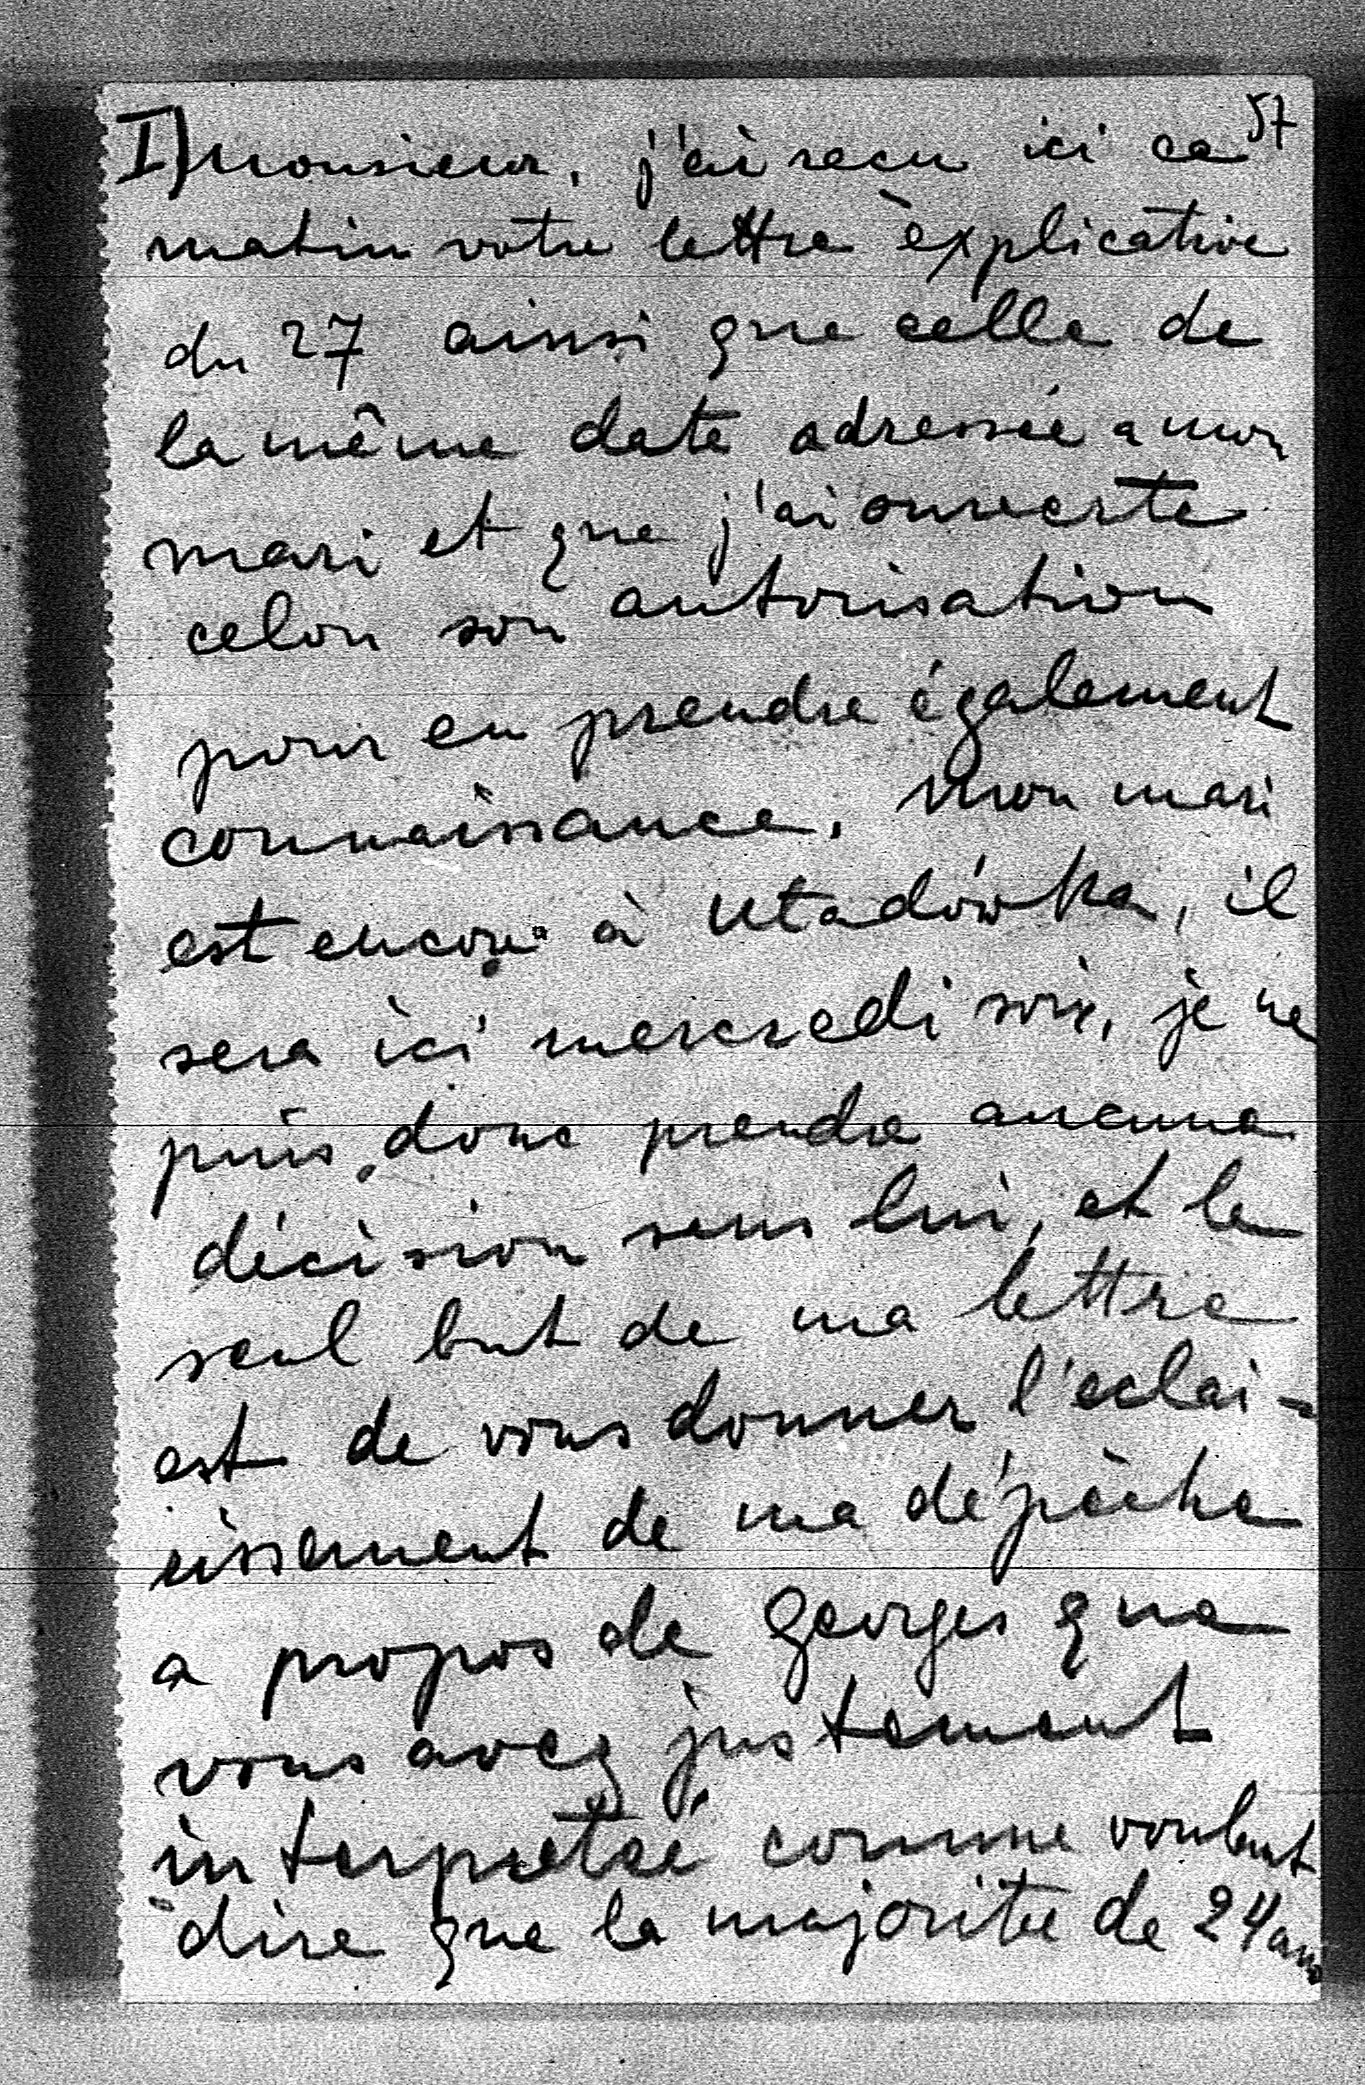 57
I) Monsieur, j'ai recu ici ce
matin votre lettre èxplicative
du 27 ainsi que celle de
la même date adressée a mon
mari et que j'ai ouverte
celon son autorisation
pour en prendre également
connaissance. Mon mari
est encore à Utadówka, il
sera ici mercredi soir, je ne
puis donc prendre aucune
décision sans lui, et le
seul but de ma lettre
est de vous donner l'eclai-
issement de ma dépèche
a propos de Georges que
vous avez justement
interpretté comme voulent
dire que la majorité de 24 ans